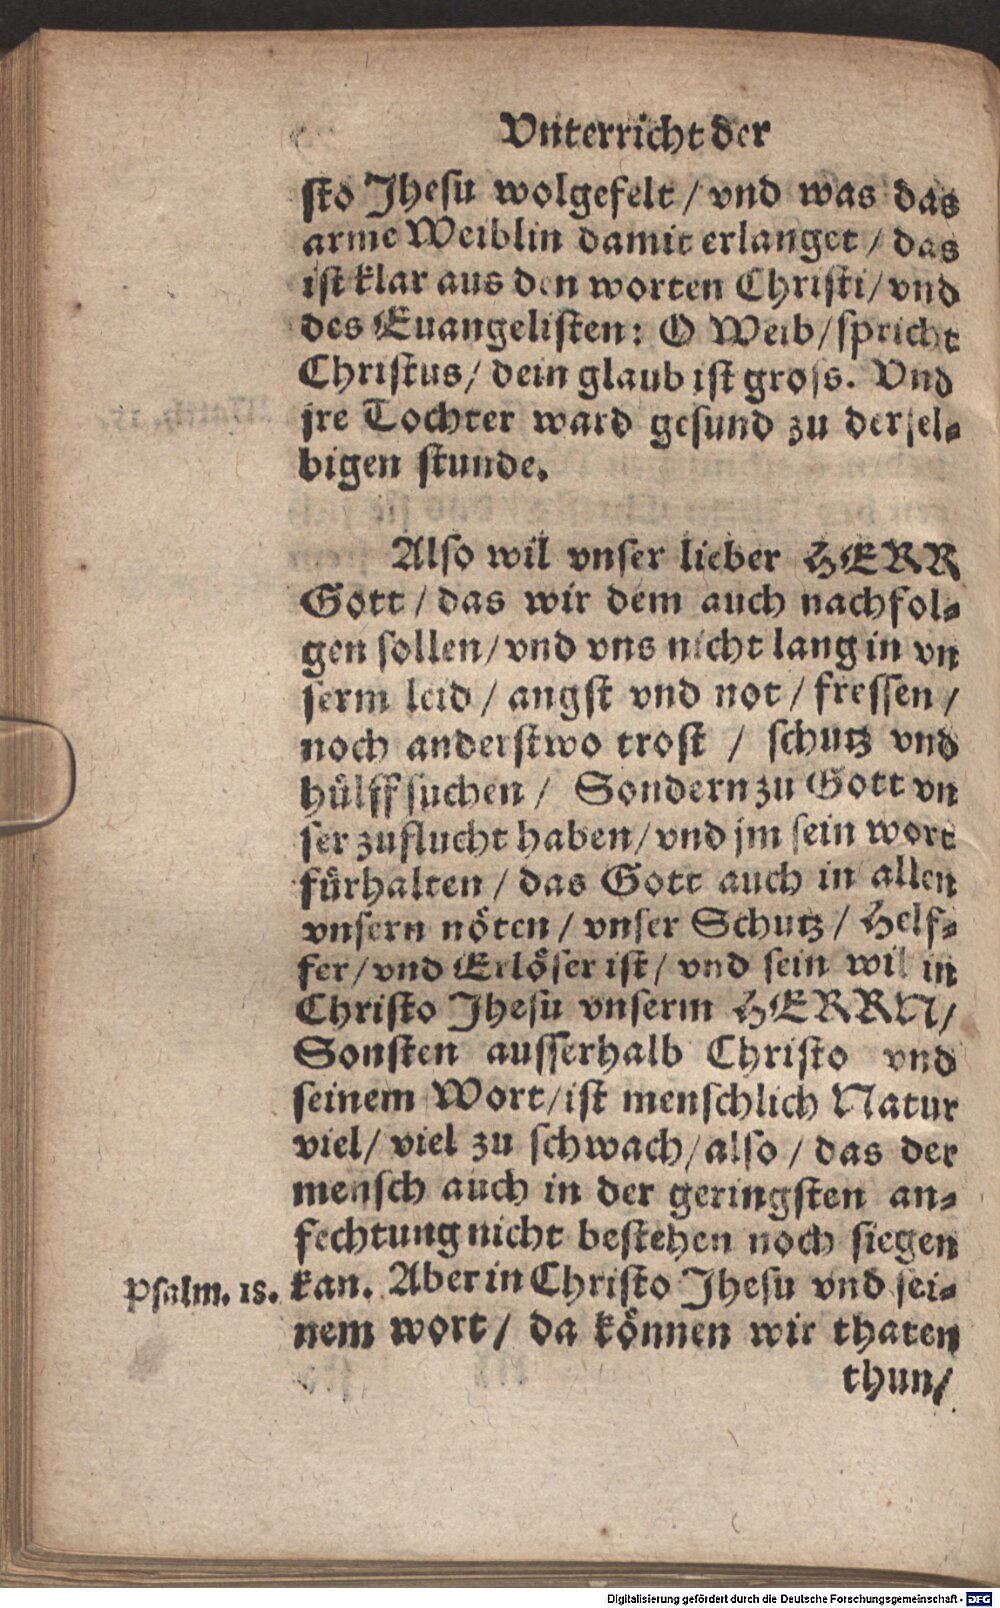 Vnterricht der
sto Jhesu wolgefelt / vnd was das
arme Weiblin damit erlanget / das
ist klar aus den worten Christi / vnd
des Euangelisten: O Weib / spricht
Christus / dein glaub ist gross. Vnd
jre Tochter ward gesund zu dersel-
bigen stunde.
Also wil vnser lieber HERR
Gott / das wir dem auch nachfol-
gen sollen / vnd vns nicht lang in vn
serm leid / angst vnd not / fressen /
noch anderstwo trost / schutz vnd
hülff suchen / Sondern zu Gott vn
ser zuflucht haben / vnd jm sein wort
fürhalten / das Gott auch in allen
vnsern nöten / vnser Schutz / Helf-
fer / vnd Erlöser ist / vnd sein wil in
Christo Jhesu vnserm HERRN /
Sonsten ausserhalb Christo vnd
seinem Wort / ist menschlich Natur
viel / viel zu schwach / also / das der
mensch auch in der geringsten an-
fechtung nicht bestehen noch siegen
Psalm. 18. kan. Aber in Christo Jhesu vnd sei-
nem wort / da können wir thaten
thun /
Digitalisierung gefördert durch die Deutsche Forschungsgemeinschaft - DFG